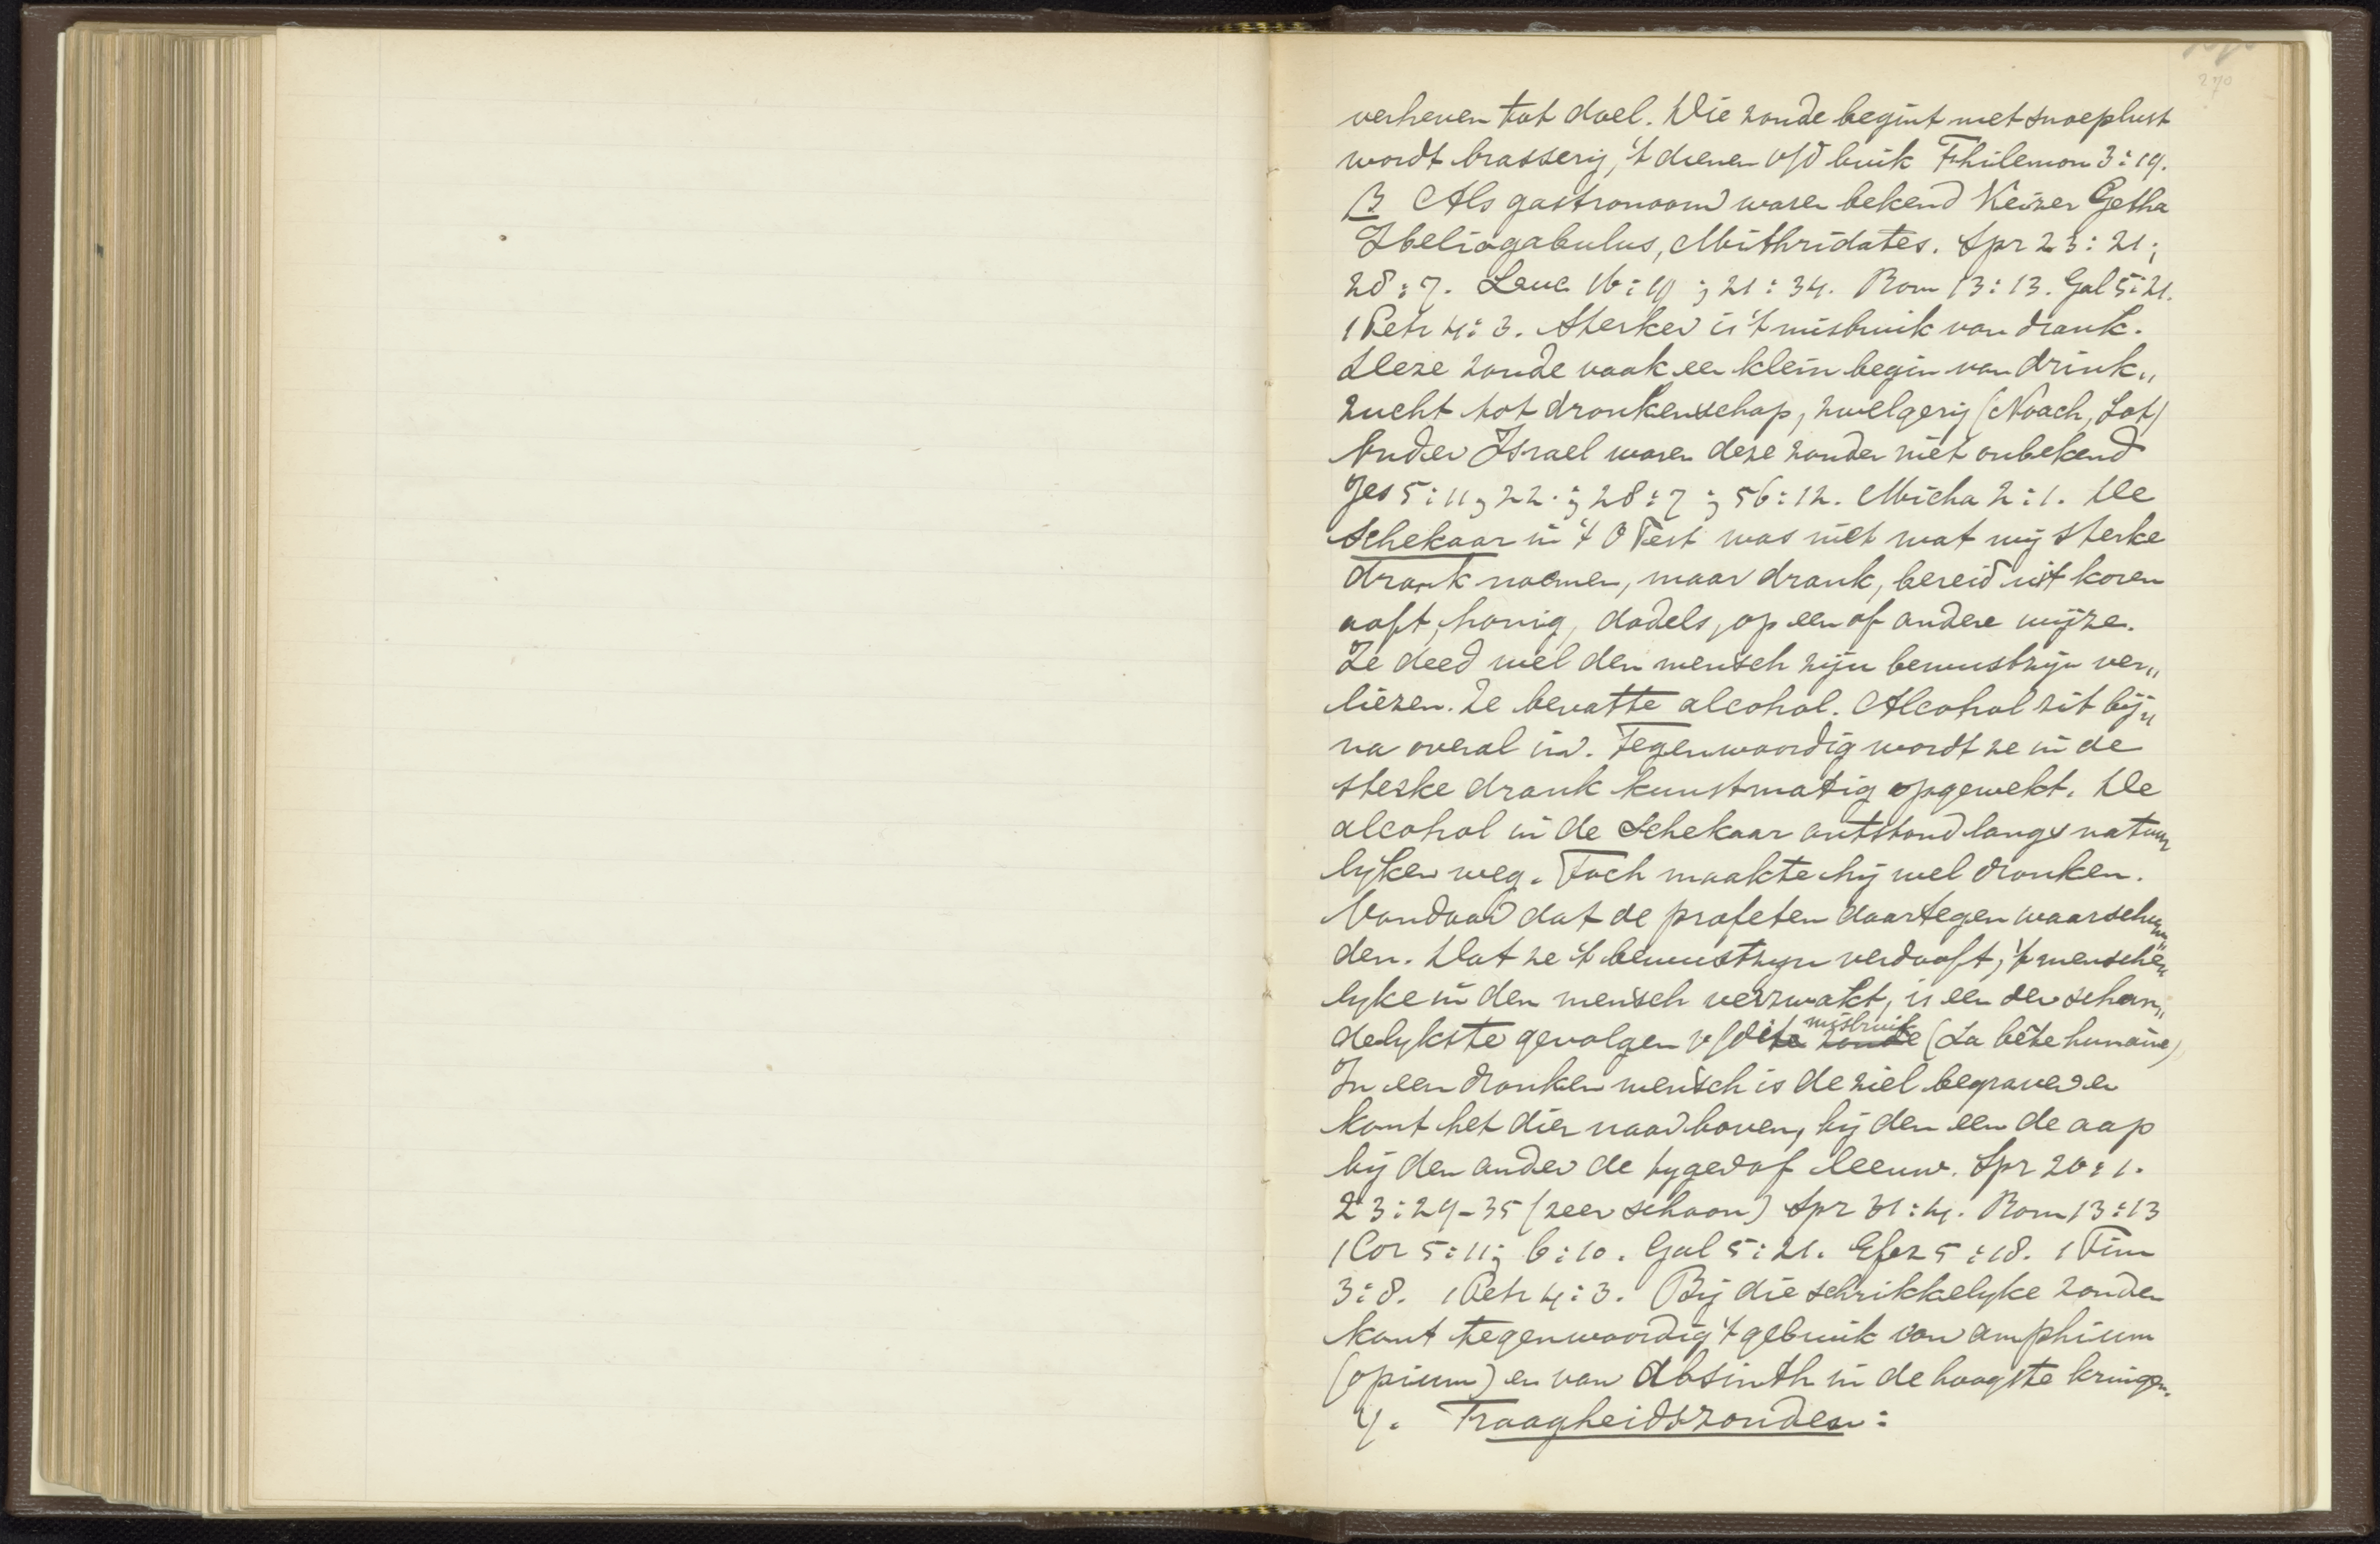 270
verheven tot doel. Die zonde begint met snoeplust
wordt brasserij, 't dienen v/d buik Philemon 3:19.
β Als gastronoom waren bekend Keizer Getha
Heliogabulus, Mithridates. Spr 23:21;
28:7. Luc 16:19; 21:34. Rom 13:13. Gal 5:21.
1 Petr 4:3. Sterker is 't misbruik van drank.
Deze zonde vaak een klein begin van drink„
zucht tot dronkenschap, zwelgerij (Noach, Lot)
Onder Israel waren deze zonden niet onbekend
Jes 5:11, 22.; 28:7; 56:12. Micha 2:1. De
Schekaar in 't O Test was niet wat wij sterke
drank noemen, maar drank, bereid uit koren
ooft, honig, dadels, op een of andere wijze.
Ze deed wel den mensch zijn bewustzijn ver„
liezen. Ze bevatte alcohol. Alcohol zit bij„
na overal in. Tegenwoordig wordt ze in de
sterke drank kunstmatig opgewekt. De
alcohol in de Schekaar ontstond langs natuur
lyken weg. Toch maakte hij wel dronken.
Vandaar dat de profeten daartegen waarschuw„
den. Dat ze 't bewustzyn verdooft, 't menschen
lyke in den mensch verzwakt, is een der schan„
delykste gevolgen v/dit zonde misbruik (La bête humaine)
In een dronken mensch is de ziel begraven en
komt het dier naar boven, bij den een de aap
bij den ander de tyger of leeuw. Spr 20:1.
23:29-35 (zeer schoon) Spr 31:4. Rom 13:13
1 Cor 5:11; 6:10. Gal 5:21. Efez 5:18. 1 Tim
3:8. 1 Petr 4:3. Bij die schrikkelyke zonden
komt tegenwoordig 't gebruik van amphium
(opium) en van absinth in de hoogste kringen.
4. Traagheidszonden: